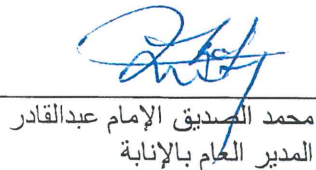 محمد الصديق الإمام عبدالقادر
المدير العام بالإنابة